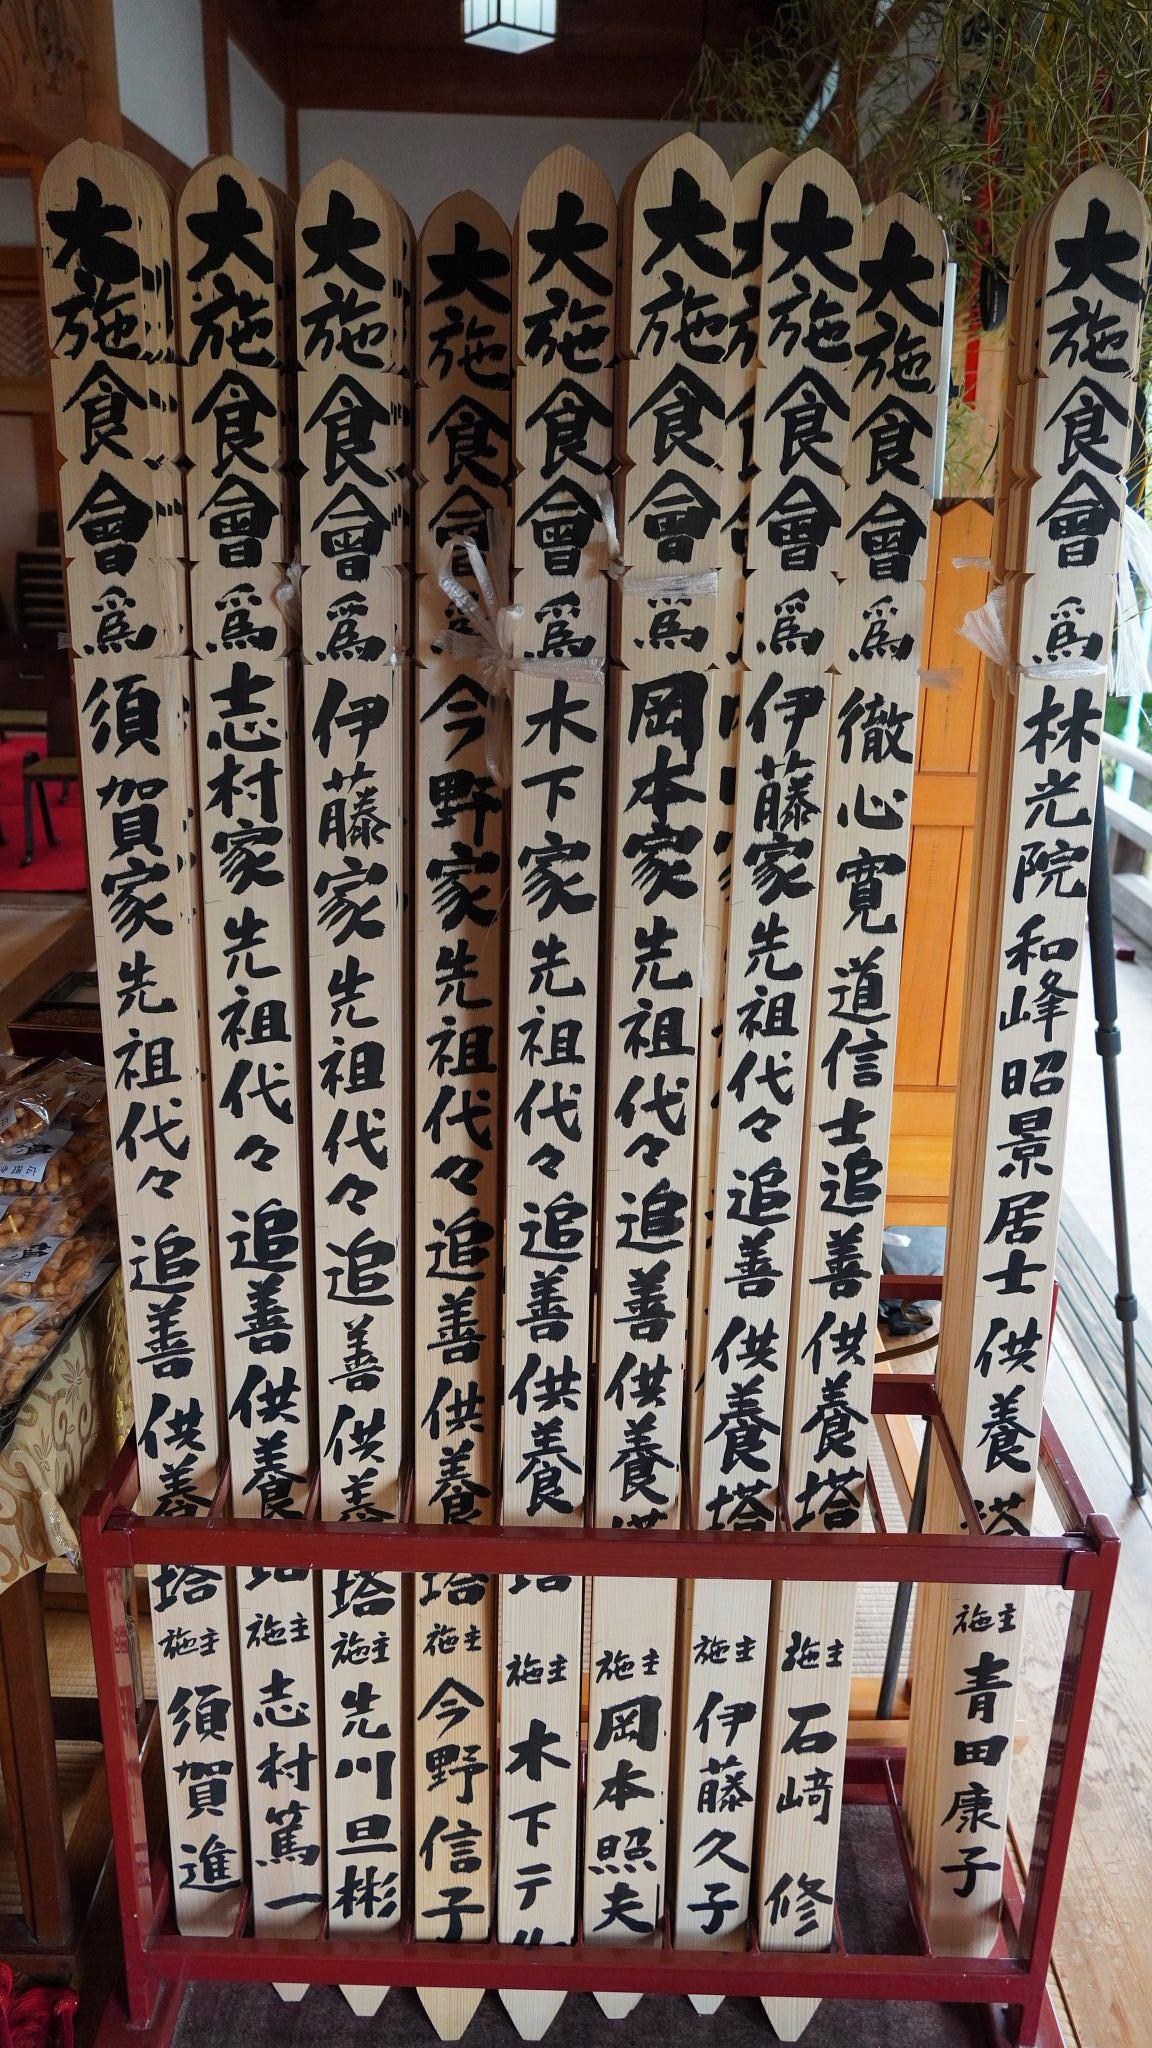 大施食會爲林光院和峰昭景居士供養塔 施主 青田康子
大施食會爲徹心寛道信士追善供養塔 施主 石﨑 修
大施食會爲伊藤家先祖代々追善供養塔 施主 伊藤久子
大施食會爲岡本家先祖代々追善供養塔 施主 岡本照夫
大施食會爲木下家先祖代々追善供養塔 施主 木下テル
大施食會爲今野家先祖代々追善供養塔 施主 今野信子
大施食會爲伊藤家先祖代々追善供養塔 施主 先川旦彬
大施食會爲志村家先祖代々追善供養塔 施主 志村篤一
大施食會爲須賀家先祖代々追善供養塔 施主 須賀進